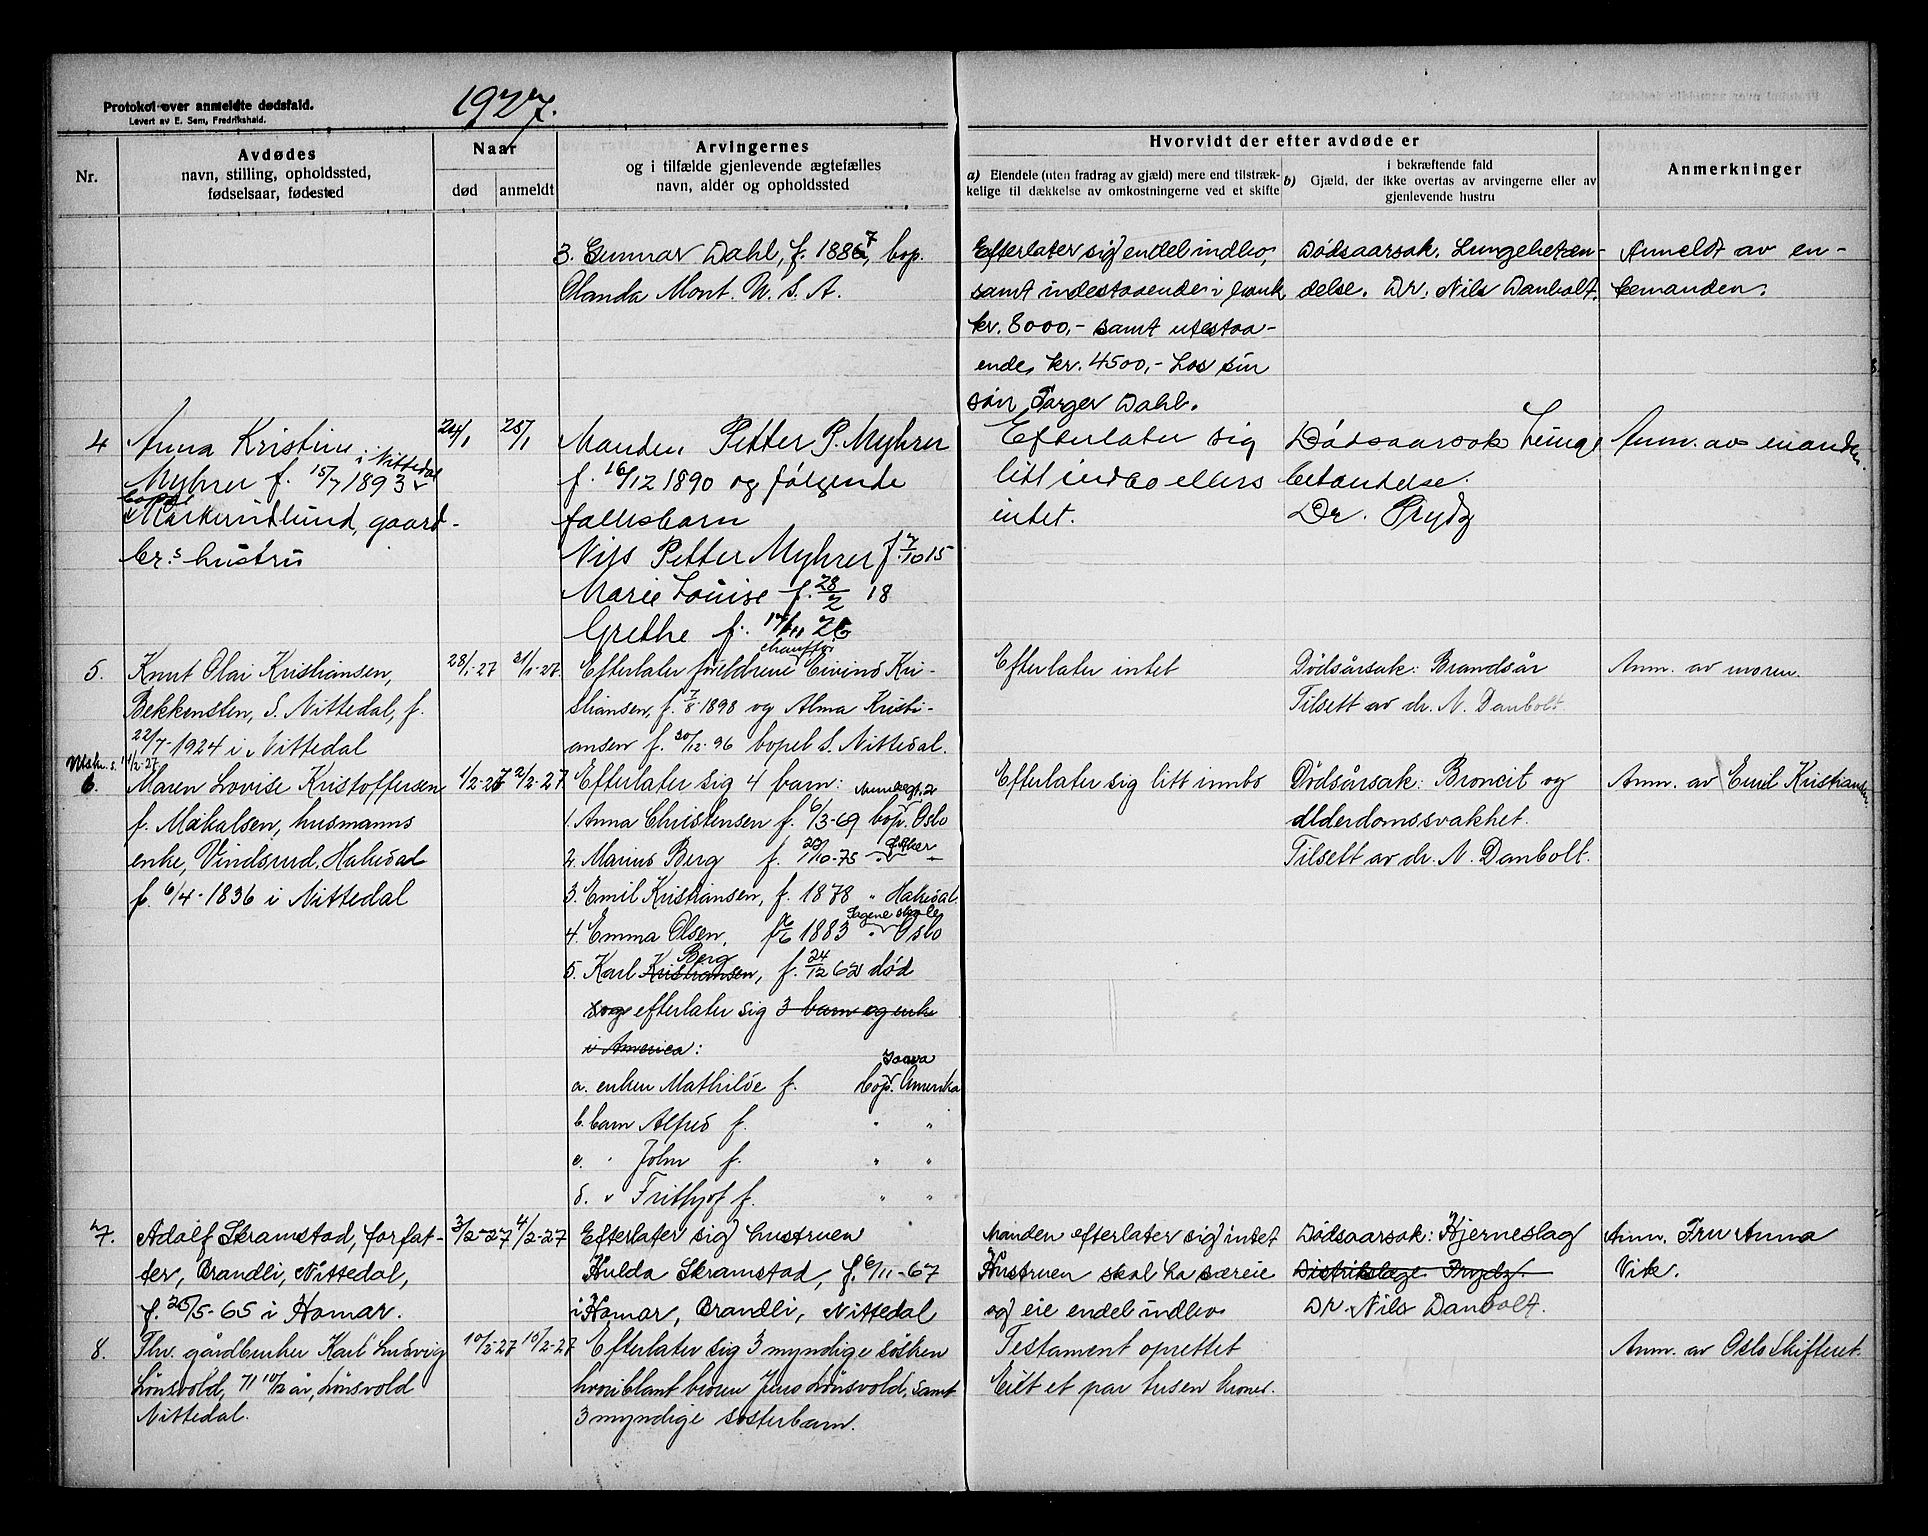 Protokol over anmeldte dødsfald.
Levert av E. Sem, Fredrikshald.
1927.
Nr.
Avdødes
navn, stilling, opholdssted,
fødselsaar, fødested
Naar
død
anmeldt
Arvingernes
og i tilfælde gjenlevende ægtefælles
navn, alder og opholdssted
Hvorvidt der efter avdøde er
a) Eiendele (uten fradrag av gjæld) mere end tilstræk-
kelige til dækkelse av omkostningerne ved et skifte
i bekræftende fald
b) Gjæld, der ikke overtas av arvingerne eller av
gjenlevende hustru
Anmerkninger
3. Gunnar Dahl, f. 1887, bop.
Olanda Mont. U. S. A.
Efterlater sig endel indbo,
samt indestaaende i bank
kr. 8000,- samt utestaa-
ende kr. 4500,- hos sin
søn Birger Dahl.
Dødsaarsak. Lungebetæn-
delse. Dr. Nils Danbolt.
Anmeldt av en-
kemanden.
4
Anna Kristine
Myhrer f. 15/7 1893 i Nittedal
bopæl
Markerudlund, gaard-
br.s hustru
24/1
25/1
Manden Petter P. Myhrer
f. 16/12 1890 og følgende
fællesbarn
Nils Petter Myhrer f. 7/10 15
Marie Louise f. 28/2 18
Grethe f. 17/11 26
Efterlater sig
litt indbo ellers
intet.
Dødsaarsak Lunge
betændelse.
Dr. Prydz
Anm. av manden.
5.
Knut Olai Kristiansen,
Bekkensten, S. Nittedal, f.
22/7-1924 i Nittedal
28/1-27
31/1-27
chauffør
Efterlater foreldrene Eivind Kri-
stiansen, f. 7/8-1898 og Alma Kristi-
ansen f. 30/12-96 bopel S. Nittedal.
Efterlater intet
Dødsårsak: Brandsår
Tilsett av dr. N. Danbolt.
Anm. av moren.
Utskr. s. 11/2-27
6.
Maren Lovise Kristoffersen
f. Mikalsen, husmanns
enke, Vindsrud, Hakedal
f. 6/4-1836 i Nittedal
1/2-27
2/2-27
Efterlater sig 4 barn:
1. Anna Christensen f. 6/3-69 bop. Oslo
2. Marius Berg f. 25/10-75 " "
3. Emil Kristiansen, f. 1878 " Hakedal.
Sagene skole
4. Emma Olsen, f. 1883 " Oslo
Berg
5. Karl Kristiansen, f. 24/12 62 død
og efterlater sig 3 barn og enke
i America:
a. enken Mathilde f. bop. Amerika
b. barn Alfred f. " "
c. " John f. " "
d. " Frithjof f. " "
Efterlater sig litt innbo
Dødsårsak: Broncit og
alderdomssvakhet.
Tilsett av dr. N. Danbolt.
Anm. av Emil Kristiansen
7.
Adolf Skramstad, forfat-
ter, Brandli, Nittedal,
f. 26/5-65 i Hamar.
3/2-27
4/2-27
Efterlater sig hustruen
Hulda Skramstad, f. 6/11-67
i Hamar, Brandli, Nittedal
Manden efterlater sig intet
Hustruen skal ha særeie
og eie endel indbo
Dødsaarsak: Hjerneslag
Distriktslæge Prydz.
Dr. Nils Danbolt.
Anm. Fru Anna
Vik.
8.
Fhv. gårdbruker Karl Ludvig
Lønsvold, 71 10/12 år, Lønsvold
Nittedal.
10/2-27
10/2-27
Efterlater sig 3 myndige søsken
hvoriblant broren Jens Lønsvold, samt
3 myndige søsterbarn.
Testament oprettet
Eilt et par tusen kroner.
Anm. av Oslo Skifteret.